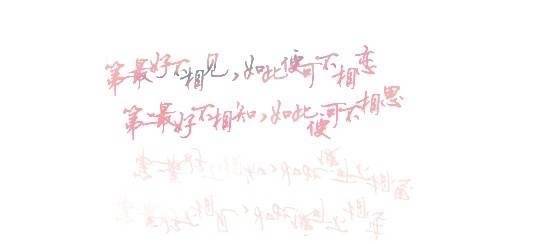 第一最好不相见,如此便可不相恋
第二最好不相知,如此便可不相思